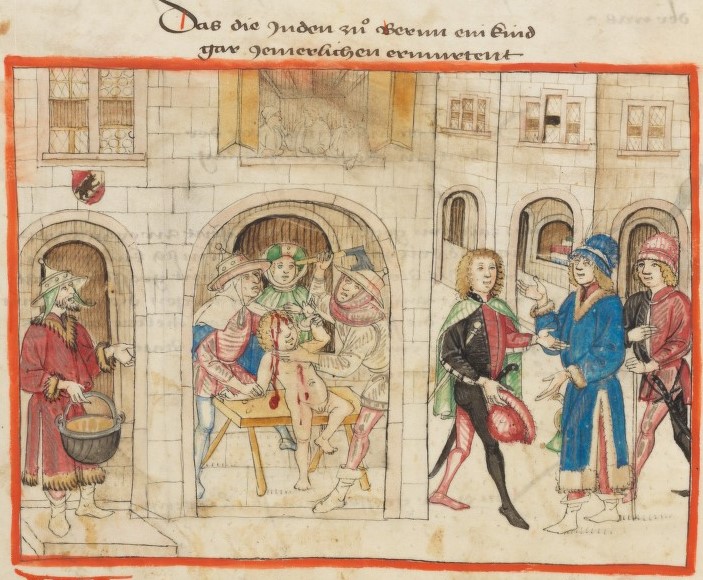 Das die Juden zů Bernn ein kind
gar Jemerlichen ermurtent